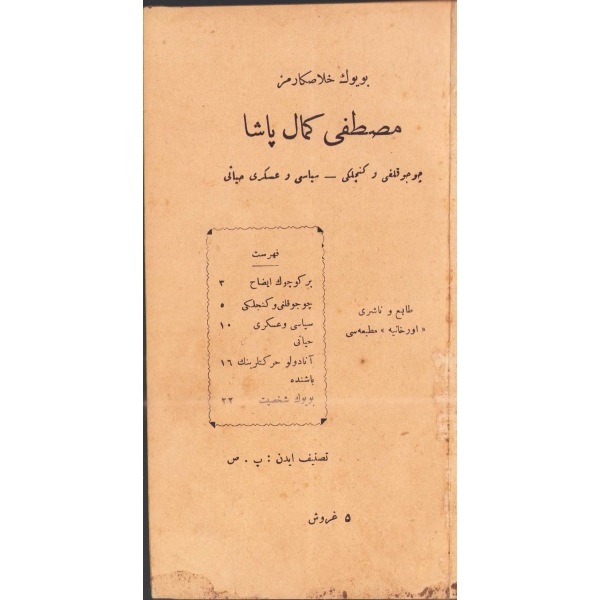 بويوك خلاصكارمز
مصطفى كمال پاشا
چوجوقلغى و كنجلكى — سياسى و عسكرى حياتى
فهرست
بر كوچوك ايضاح ٣
چوجوقلغى و كنجلكى ٥
سياسى و عسكرى ١٠
حياتى
آنادولو حركتلرينك ١٦
باشنده
بويوك شخصيت ٢٢
طابع و ناشرى
« اورخانيه » مطبعه‌سى
تصنيف ايدن : پ . ص
٥ غروش